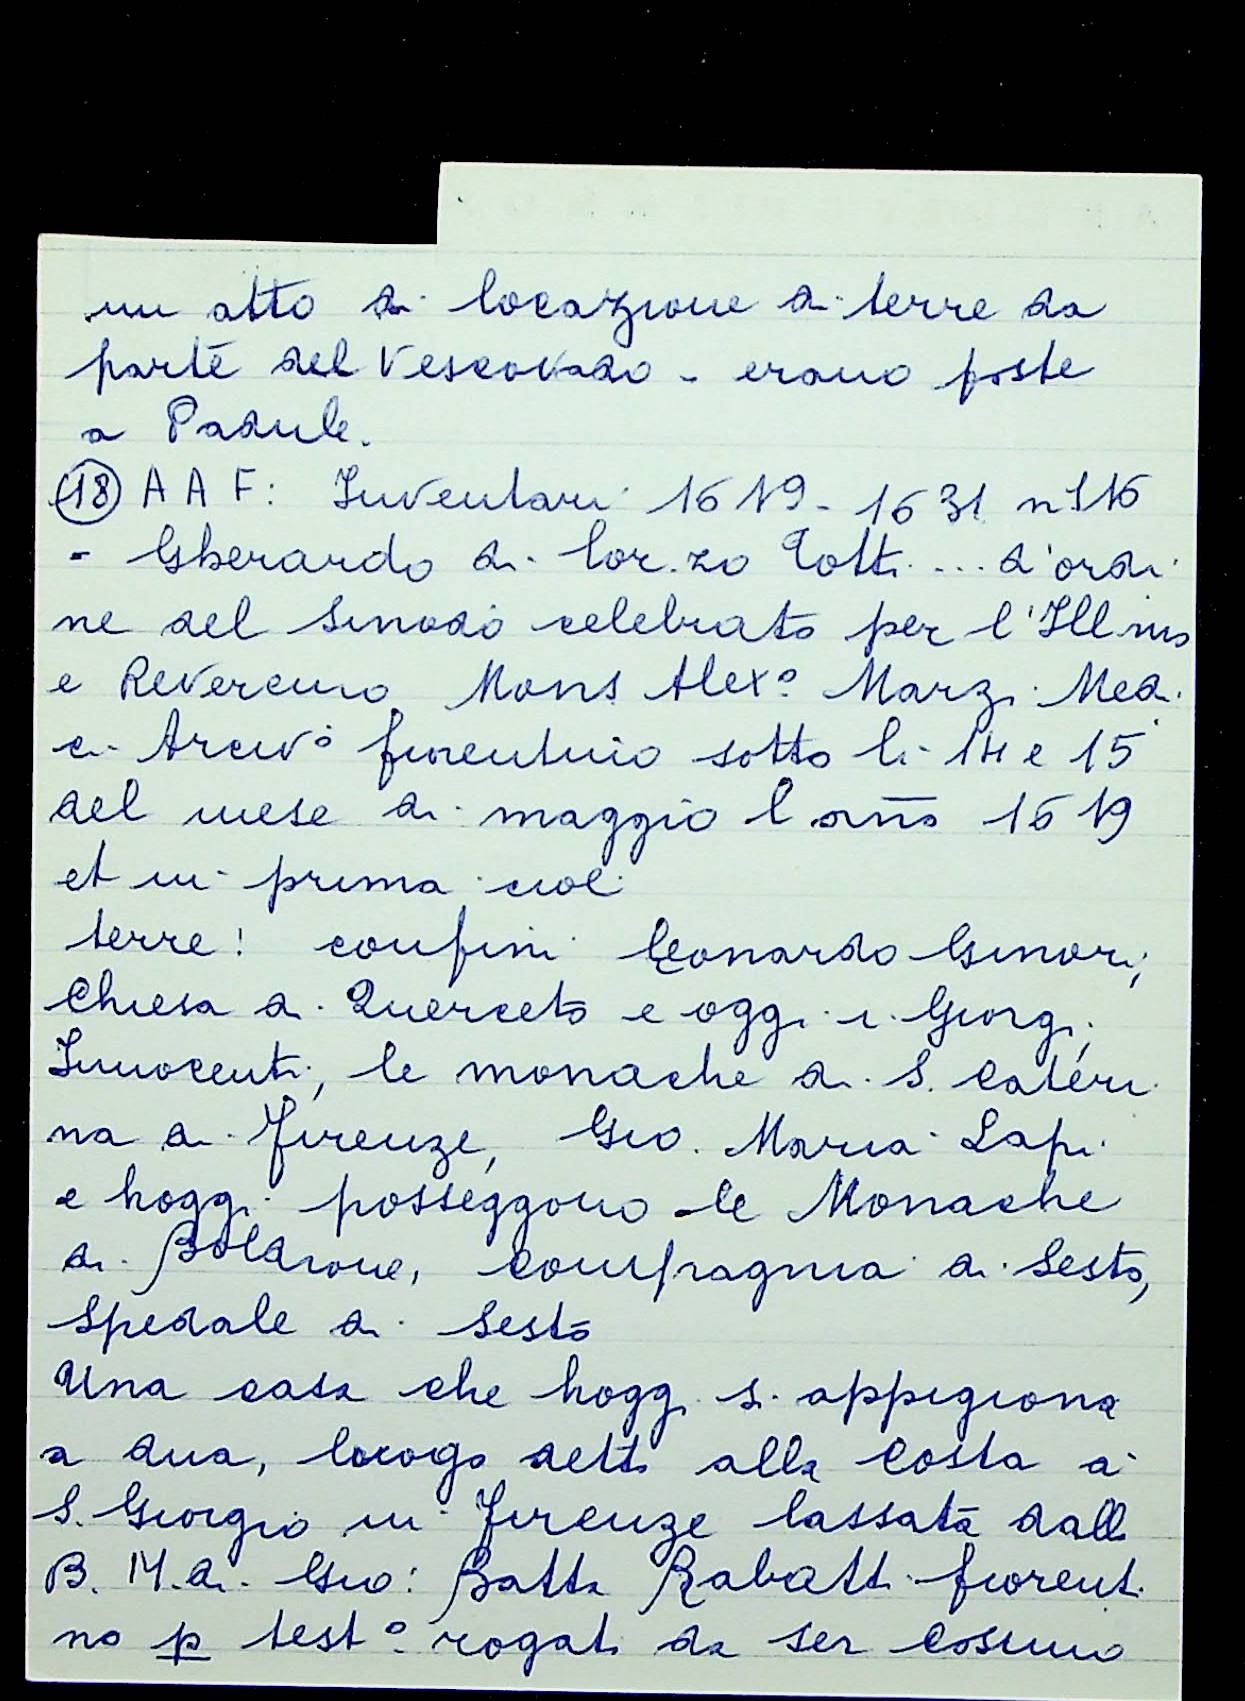 un atto di locazione di terre da
parte del Vescovado - erano poste
a Padule.
(18) A A F: Inventari 1619-1631 n 116
- Gherardo di Lor.zo Totti ... d'ordi
ne del Sinodo celebrato per l'Ill mo
e Reveremo Mons Alex° Marzi Med
ci Arciv° fiorentino sotto li 14 e 15
del mese di maggio l anno 1619
et in prima cioè
terre: confini Leonardo Ginori,
Chiesa di Querceto e oggi i Giorgi,
Innocenti, le monache di S. Cateri
na di Firenze, Gio. Maria Lapi
e hoggi posseggono le Monache
di Boldrone, compagnia di Sesto,
Spedale di Sesto
Una casa che hoggi si appigiona
a dua, luogo detto alla Costa a
S. Giorgio in Firenze lassata dall
B. M. di Gio: Batta Rabatti fiorenti
no p test° rogati da ser Cosimo